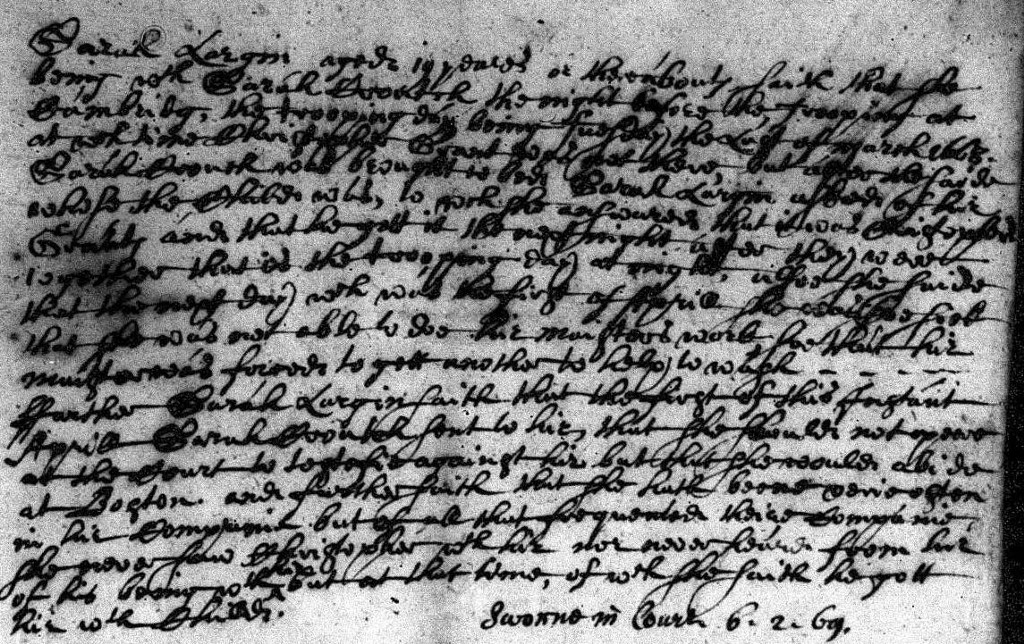 Sarah Largin aged 19 yeares or thereabouts saith that she
being wth Sarah Crouch the night before the trooping at
Cambridg, the trooping day being tuesday the last of march 1668.
at wch time Christopher Grant was not there, but after the saide
Sarah Crouch was brought to bed, Sarah Largin asked of hir
whose the Child was, to wch she answered that it was Christopher
Grants and that he gott it the next night after they weer
together that is the trooping day at night, allsoe she saide
that the next day wch was the first of Aprill she was soe sick
that she was not able to doe hir maisters work soe that hir
maister was forced to gett another to help to wash - - - - -
ffurther Sarah Largin saith that the first of this Instant
Aprill Sarah Crouch sent to hir, that she should not apeere
at the Court to testefie against hir but that she would abide
at Boston. and further saith that she hath beene verie often
in hir Companie but of all that frequented theire Companie,
she never saw Christopher wth hir nor never heard from hir
of his being wth hir but at that time, of wch she saith he gott
hir wth Child.
Sworne in Court 6. 2. 69.